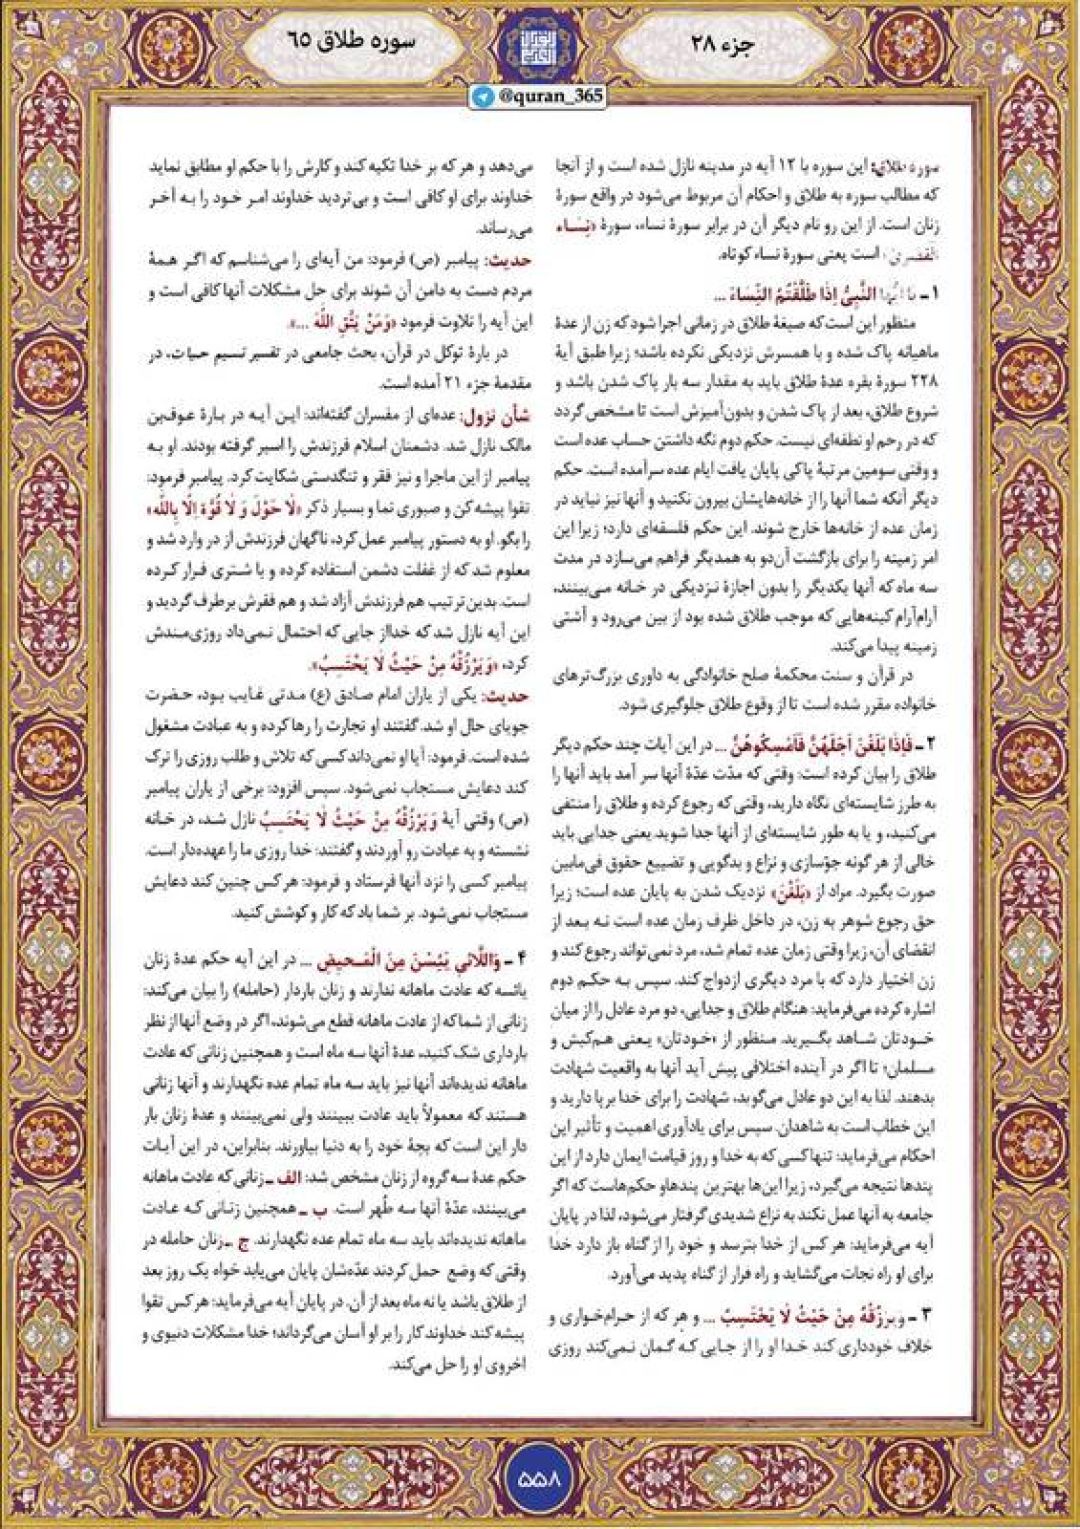 جزء ۲۸
سوره طلاق ۶۵
@quran_365
سوره طلاق: این سوره با ۱۲ آیه در مدینه نازل شده است و از آنجا
که مطالب سوره به طلاق و احکام آن مربوط می‌شود در واقع سورهٔ
زنان است. از این رو نام دیگر آن در برابر سورهٔ نساء، سورهٔ «نِسَاء
القصری» است یعنی سورهٔ نساء کوتاه.
۱ - یَا أَیُّهَا النَّبِیُّ إِذَا طَلَّقْتُمُ النِّسَاءَ ...
منظور این است که صیغهٔ طلاق در زمانی اجرا شود که زن از عدهٔ
ماهیانه پاک شده و با همسرش نزدیکی نکرده باشد؛ زیرا طبق آیهٔ
۲۲۸ سورهٔ بقره عدهٔ طلاق باید به مقدار سه بار پاک شدن باشد و
شروع طلاق، بعد از پاک شدن و بدون‌آمیزش است تا مشخص گردد
که در رحم او نطفه‌ای نیست. حکم دوم نگه داشتن حساب عده است
و وقتی سومین مرتبهٔ پاکی پایان یافت ایام عده سرآمده است. حکم
دیگر آنکه شما آنها را از خانه‌هایشان بیرون نکنید و آنها نیز نباید در
زمان عده از خانه‌ها خارج شوند. این حکم فلسفه‌ای دارد؛ زیرا این
امر زمینه را برای بازگشت آن‌دو به همدیگر فراهم می‌سازد در مدت
سه ماه که آنها یکدیگر را بدون اجازهٔ نزدیکی در خانه می‌بینند،
آرام‌آرام کینه‌هایی که موجب طلاق شده بود از بین می‌رود و آشتی
زمینه پیدا می‌کند.
در قرآن و سنت محکمهٔ صلح خانوادگی به داوری بزرگ‌ترهای
خانواده مقرر شده است تا از وقوع طلاق جلوگیری شود.
۲ - فَإِذَا بَلَغْنَ أَجَلَهُنَّ فَأَمْسِکُوهُنَّ ... در این آیات چند حکم دیگر
طلاق را بیان کرده است: وقتی که مدّت عدّهٔ آنها سر آمد باید آنها را
به طرز شایسته‌ای نگاه دارید، وقتی که رجوع کرده و طلاق را منتفی
می‌کنید، و یا به طور شایسته‌ای از آنها جدا شوید.یعنی جدایی باید
خالی از هر گونه جوّسازی و نزاع و بدگویی و تضییع حقوق فی‌مابین
صورت بگیرد. مراد از «بَلَغْنَ» نزدیک شدن به پایان عده است؛ زیرا
حق رجوع شوهر به زن، در داخل ظرف زمان عده است نه بعد از
انقضای آن، زیرا وقتی زمان عده تمام شد، مرد نمی‌تواند رجوع کند و
زن اختیار دارد که با مرد دیگری ازدواج کند. سپس به حکم دوم
اشاره کرده می‌فرماید: هنگام طلاق و جدایی، دو مرد عادل را از میان
خودتان شاهد بگیرید. منظور از «خودتان» یعنی هم‌کیش و
مسلمان؛ تا اگر در آینده اختلافی پیش آید آنها به واقعیت شهادت
بدهند. لذا به این دو عادل می‌گوید، شهادت را برای خدا برپا دارید و
این خطاب است به شاهدان. سپس برای یادآوری اهمیت و تأثیر این
احکام می‌فرماید: تنها کسی که به خدا و روز قیامت ایمان دارد از این
پندها نتیجه می‌گیرد، زیرا این‌ها بهترین پندهاو حکم‌هاست که اگر
جامعه به آنها عمل نکند به نزاع شدیدی گرفتار می‌شود، لذا در پایان
آیه می‌فرماید: هر کس از خدا بترسد و خود را از گناه باز دارد خدا
برای او راه نجات می‌گشاید و راه فرار از گناه پدید می‌آورد.
۳ - وَیَرْزُقْهُ مِنْ حَیْثُ لَا یَحْتَسِبُ ... و هر که از حرام‌خواری و
خلاف خودداری کند خدا او را از جایی که گمان نمی‌کند روزی
می‌دهد و هر که بر خدا تکیه کند و کارش را با حکم او مطابق نماید
خداوند برای او کافی است و بی‌تردید خداوند امر خود را به آخر
می‌رساند.
حدیث: پیامبر (ص) فرمود: من آیه‌ای را می‌شناسم که اگر همهٔ
مردم دست به دامن آن شوند برای حل مشکلات آنها کافی است و
این آیه را تلاوت فرمود «وَمَنْ یَتَّقِ اللَّهَ ...».
در بارهٔ توکل در قرآن، بحث جامعی در تفسیر نسیم حیات، در
مقدمهٔ جزء ۲۱ آمده است.
شأن نزول: عده‌ای از مفسران گفته‌اند: این آیه در بارهٔ عوف‌بن
مالک نازل شد. دشمنان اسلام فرزندش را اسیر گرفته بودند. او به
پیامبر از این ماجرا و نیز فقر و تنگدستی شکایت کرد. پیامبر فرمود:
تقوا پیشه کن و صبوری نما و بسیار ذکر «لَا حَوْلَ وَ لَا قُوَّةَ إِلَّا بِاللَّه»
را بگو. او به دستور پیامبر عمل کرد، ناگهان فرزندش از در وارد شد و
معلوم شد که از غفلت دشمن استفاده کرده و با شتری فرار کرده
است. بدین‌ترتیب هم فرزندش آزاد شد و هم فقرش برطرف گردید و
این آیه نازل شد که خدااز جایی که احتمال نمی‌داد روزی‌مندش
کرد، «وَیَرْزُقْهُ مِنْ حَیْثُ لَا یَحْتَسِبُ».
حدیث: یکی از یاران امام صادق (ع) مدتی غایب بود، حضرت
جویای حال او شد. گفتند او تجارت را رها کرده و به عبادت مشغول
شده است. فرمود: آیا او نمی‌داند کسی که تلاش و طلب روزی را ترک
کند دعایش مستجاب نمی‌شود. سپس افزود: برخی از یاران پیامبر
(ص) وقتی آیهٔ وَیَرْزُقْهُ مِنْ حَیْثُ لَا یَحْتَسِبُ نازل شد، در خانه
نشسته و به عبادت رو آوردند و گفتند: خدا روزی ما را عهده‌دار است.
پیامبر کسی را نزد آنها فرستاد و فرمود: هر کس چنین کند دعایش
مستجاب نمی‌شود. بر شما باد که کار و کوشش کنید.
۴ - وَاللَّائِی یَئِسْنَ مِنَ الْمَحِیضِ ... در این آیه حکم عدهٔ زنان
یائسه که عادت ماهانه ندارند و زنان باردار (حامله) را بیان می‌کند:
زنانی از شما که از عادت ماهانه قطع می‌شوند، اگر در وضع آنها از نظر
بارداری شک کنید، عدهٔ آنها سه ماه است و همچنین زنانی که عادت
ماهانه ندیده‌اند آنها نیز باید سه ماه تمام عده نگهدارند و آنها زنانی
هستند که معمولاً باید عادت ببینند ولی نمی‌بینند و عدهٔ زنان بار
دار این است که بچهٔ خود را به دنیا بیاورند. بنابراین، در این آیات
حکم عدهٔ سه گروه از زنان مشخص شد: الف ـ زنانی که عادت ماهانه
می‌بینند، عدّهٔ آنها سه طُهر است. ب ـ همچنین زنانی که عادت
ماهانه ندیده‌اند باید سه ماه تمام عده نگهدارند. ج ـ زنان حامله در
وقتی که وضع حمل کردند عدّه‌شان پایان می‌یابد خواه یک روز بعد
از طلاق باشد یا نه ماه بعد از آن. در پایان آیه می‌فرماید: هر کس تقوا
پیشه کند خداوند کار را بر او آسان می‌گرداند؛ خدا مشکلات دنیوی و
اخروی او را حل می‌کند.
۵۵۸